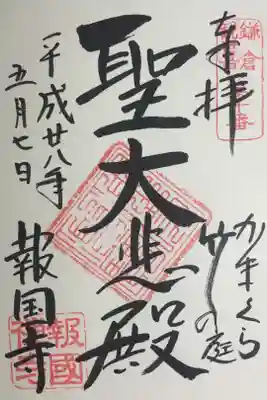 奉拝
かまくら
竹の庭
聖大悲殿
平成廿八年
五月七日
報国寺
報國